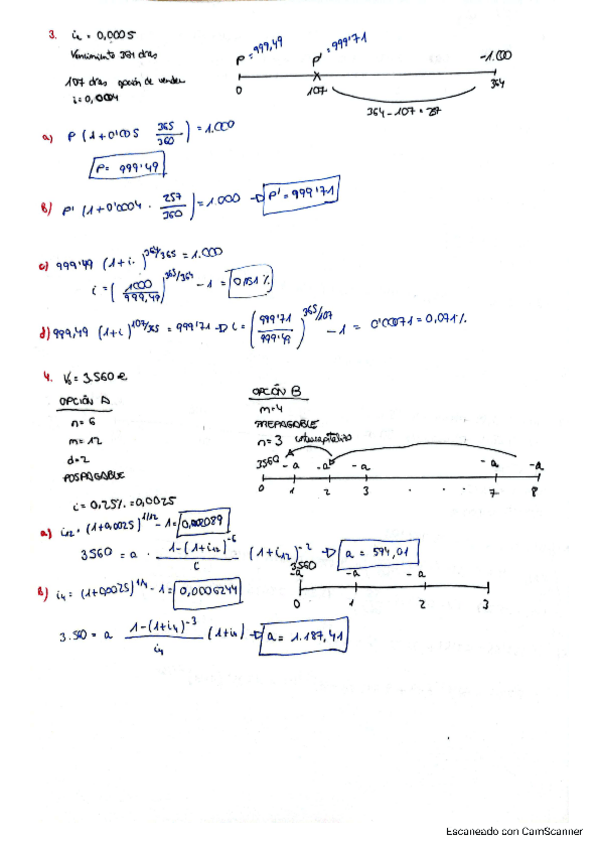 3. i = 0,0005
Vencimiento 364 días
107 días opción de vender
i = 0,0004
P = 999,49
P' = 999'71
-1.000
0
107
364
364-107 = 257
a) P (1+0'0005 365/360) = 1.000
P = 999'49
b) P' (1+0'0004 · 257/360) = 1000 → P' = 999'71
c) 999'49 (1+i)^364/365 = 1.000
i = (1000/999,49)^365/364 - 1 = 0,051%
d) 999,49 (1+i)^107/365 = 999'71 → i = (999'71/999'49)^365/107 - 1 = 0'00071 = 0,071%
4. V₀ = 3.560 €
OPCIÓN A
n = 6
m = 12
d = 2
POSPAGABLE
i = 0,25% = 0,0025
OPCIÓN B
m = 4
PREPAGABLE
n = 3
3560
-a -a -a -a -a
0 1 2 3 . . . 7 8
a) i₁₂ = (1+0,0025)^1/12 - 1 = 0,0002089
3560 = a · 1-(1+i₁₂)^-6 / i (1+i₁₂)^-2 → a = 594,01
b) i₄ = (1+0,0025)^1/4 - 1 = 0,0006244
3560
-a -a -a
0 1 2 3
3.560 = a 1-(1+i₄)^-3 / i₄ (1+i₄) → a = 1.187,41
Escaneado con CamScanner